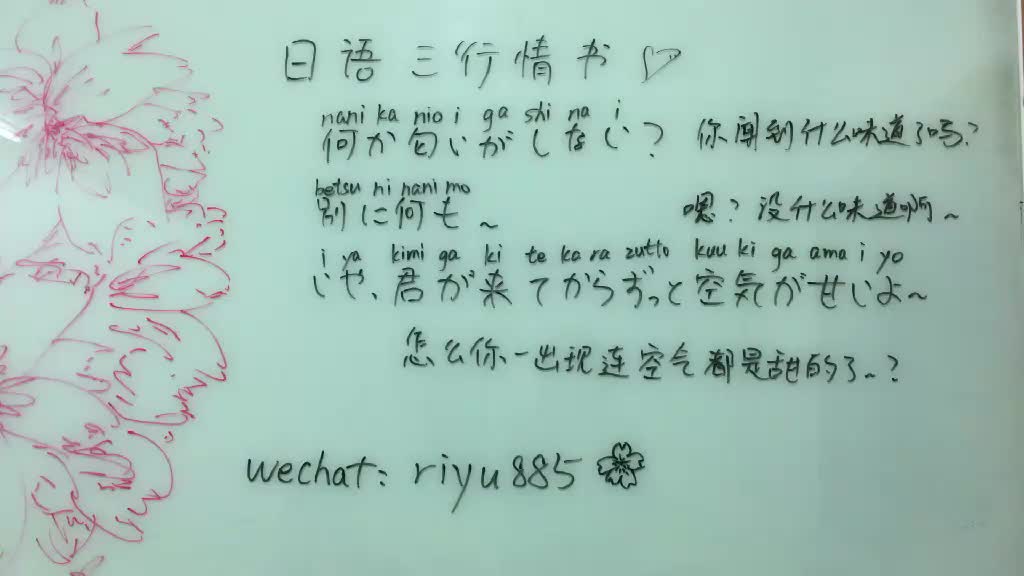 日语三行情书♡
nani ka nio i ga shi na i
何か匂いがしない? 你闻到什么味道了吗?
betsu ni nani mo
别に何も~ 嗯?没什么味道啊~
i ya kimi ga ki te ka ra zutto kuu ki ga ama i yo
いや、君が来てからずっと空気がせいよ~
怎么你一出现连空气都是甜的了~?
wechat: riyu885